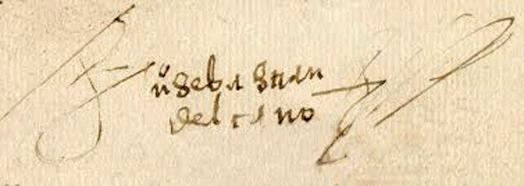 Juº Sebastian
del cano